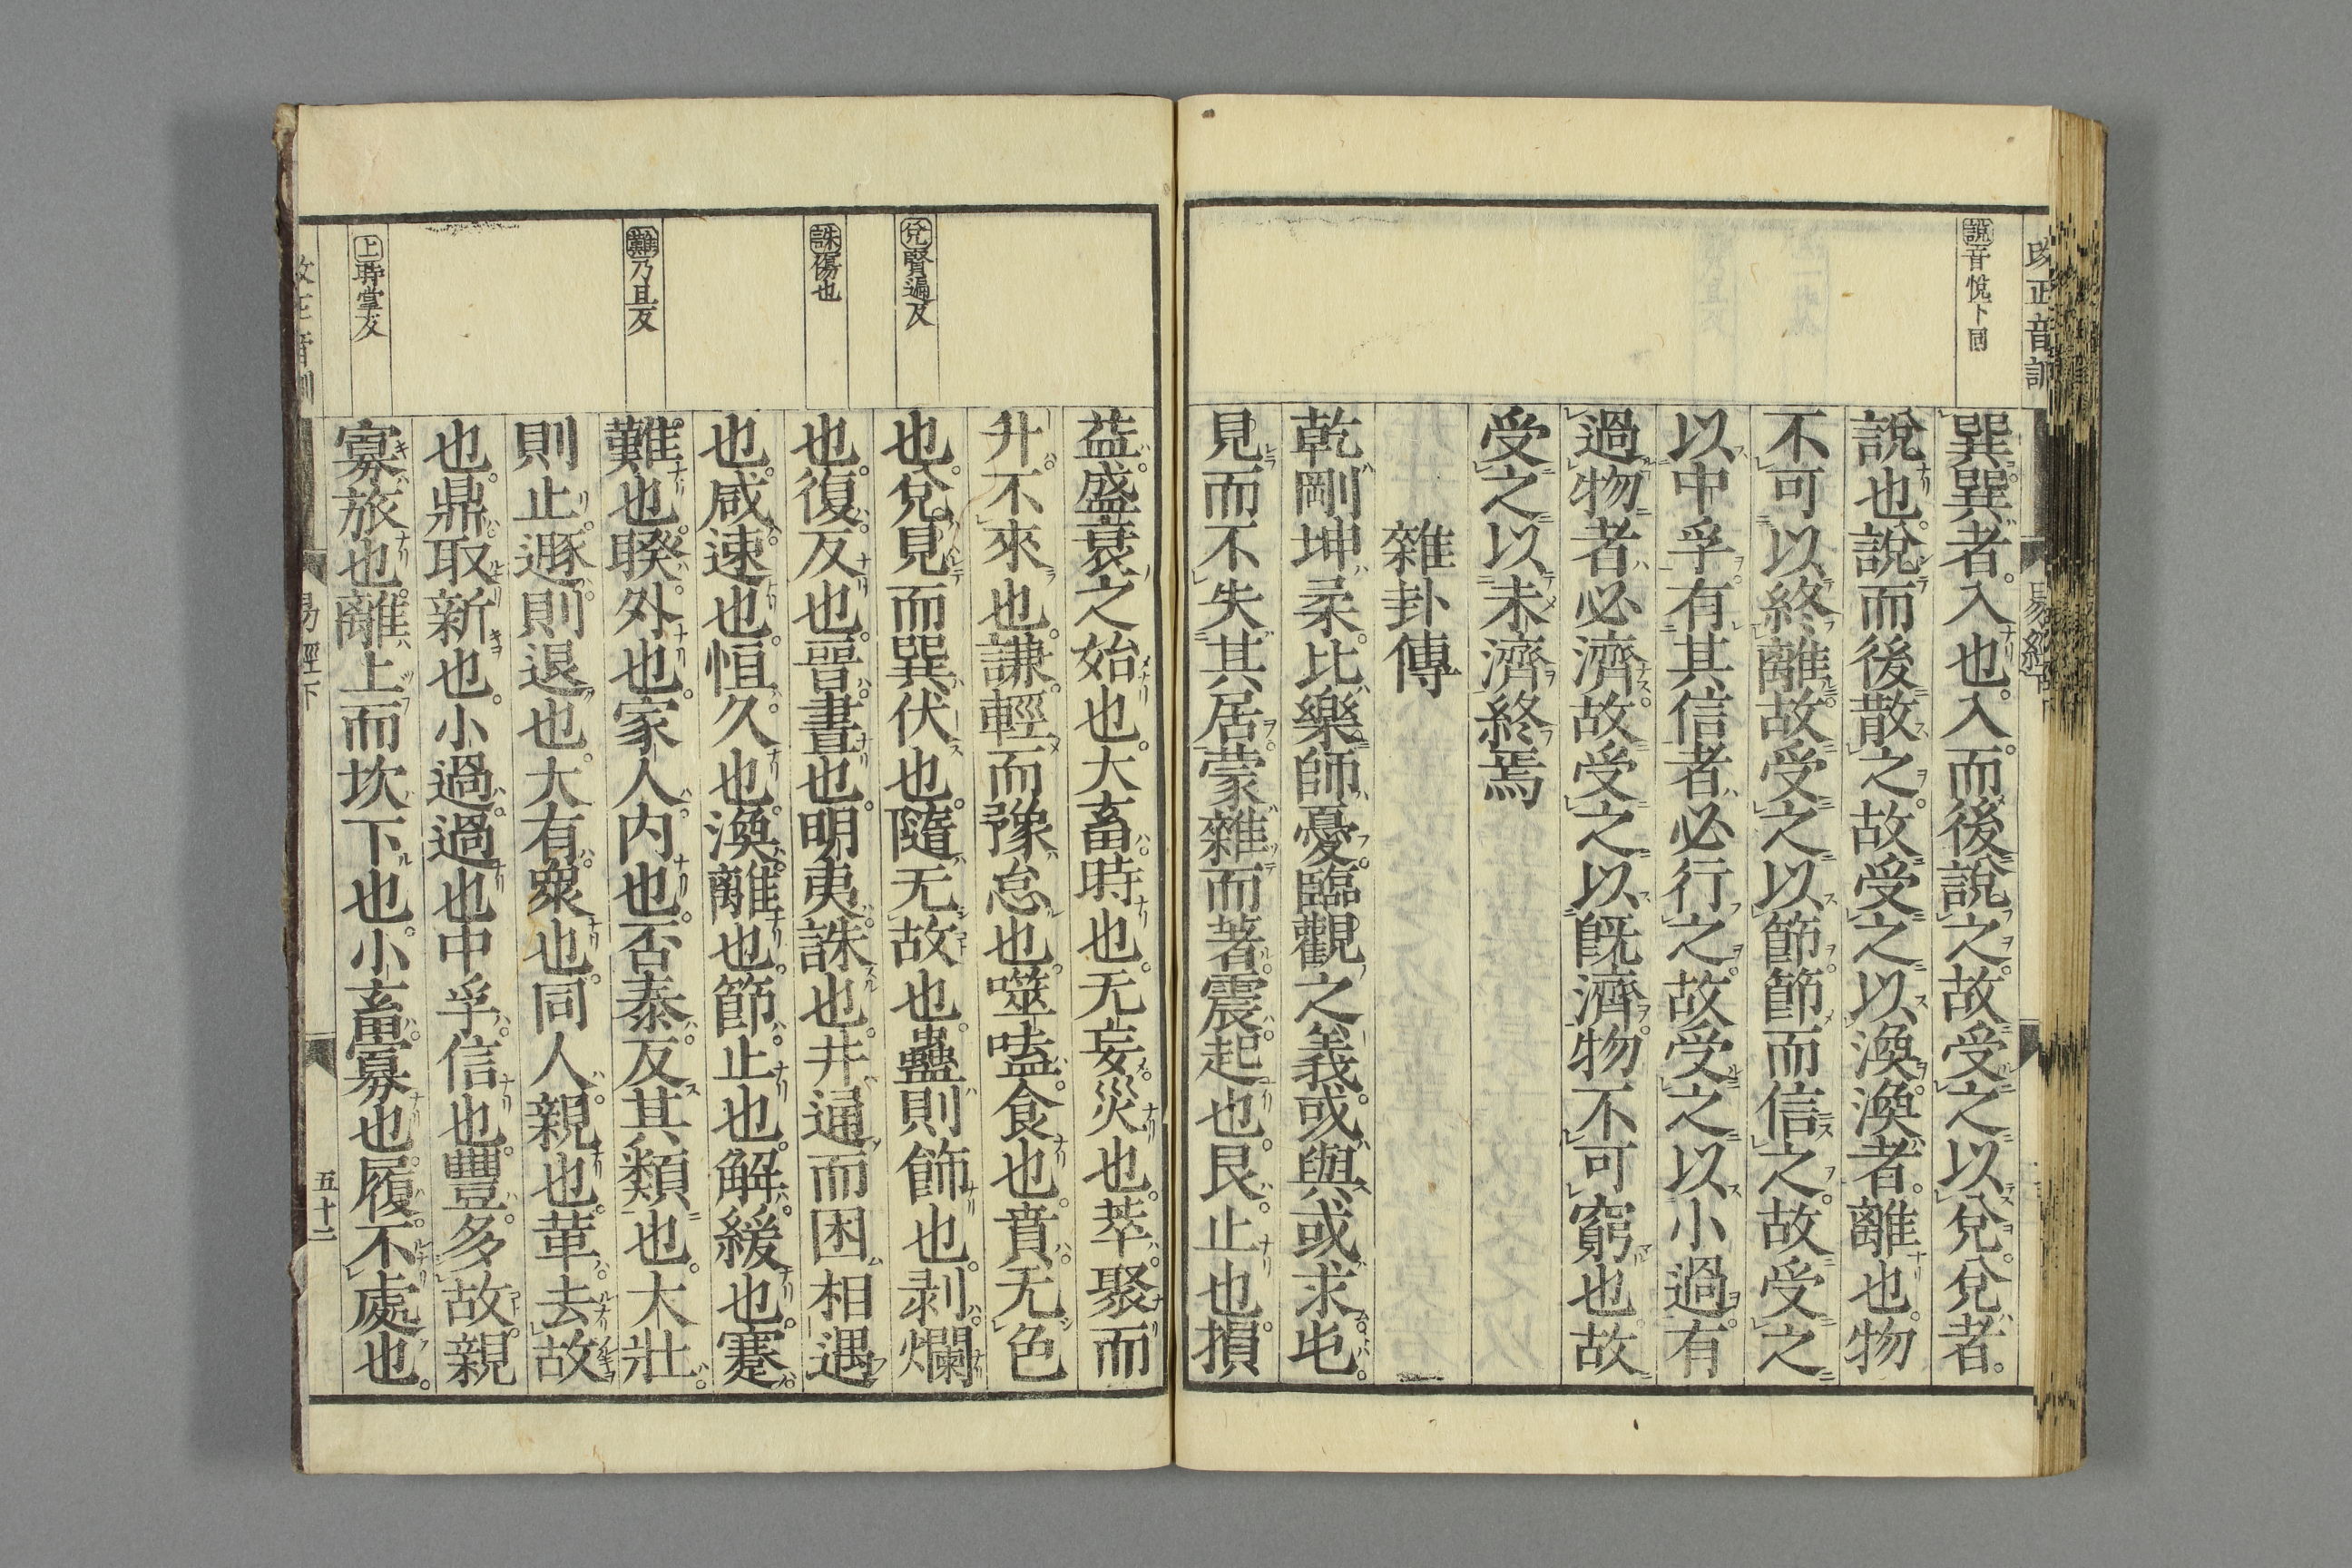 改正音訓
易經下
説音悅下同
巽巽者入也入而後說之故受之以兌兌者
說也說而後散之故受之以渙渙者離也物
不可以終離故受之以節節而信之故受之
以中孚有其信者必行之故受之以小過有
過物者必濟故受之以既濟物不可窮也故
受之以未濟終焉
雜卦傳
乾剛坤柔比樂師憂臨觀之義或與或求屯
見而不失其居蒙雜而著震起也艮止也損
兌賢遍反
誅傷也
難乃旦反
上時掌反
益盛衰之始也大畜時也无妄災也萃聚而
升不來也謙輕而豫怠也噬嗑食也賁无色
也兌見而巽伏也隨无故也蠱則飾也剥爛
也復反也晋晝也明夷誅也井通而困相遇
也咸速也恒久也渙離也節止也解緩也蹇
難也睽外也家人内也否泰反其類也大壯
則止遯則退也大有衆也同人親也革去故
也鼎取新也小過過也中孚信也豐多故親
寡旅也離上而坎下也小畜寡也履不處也
易經下
五十二